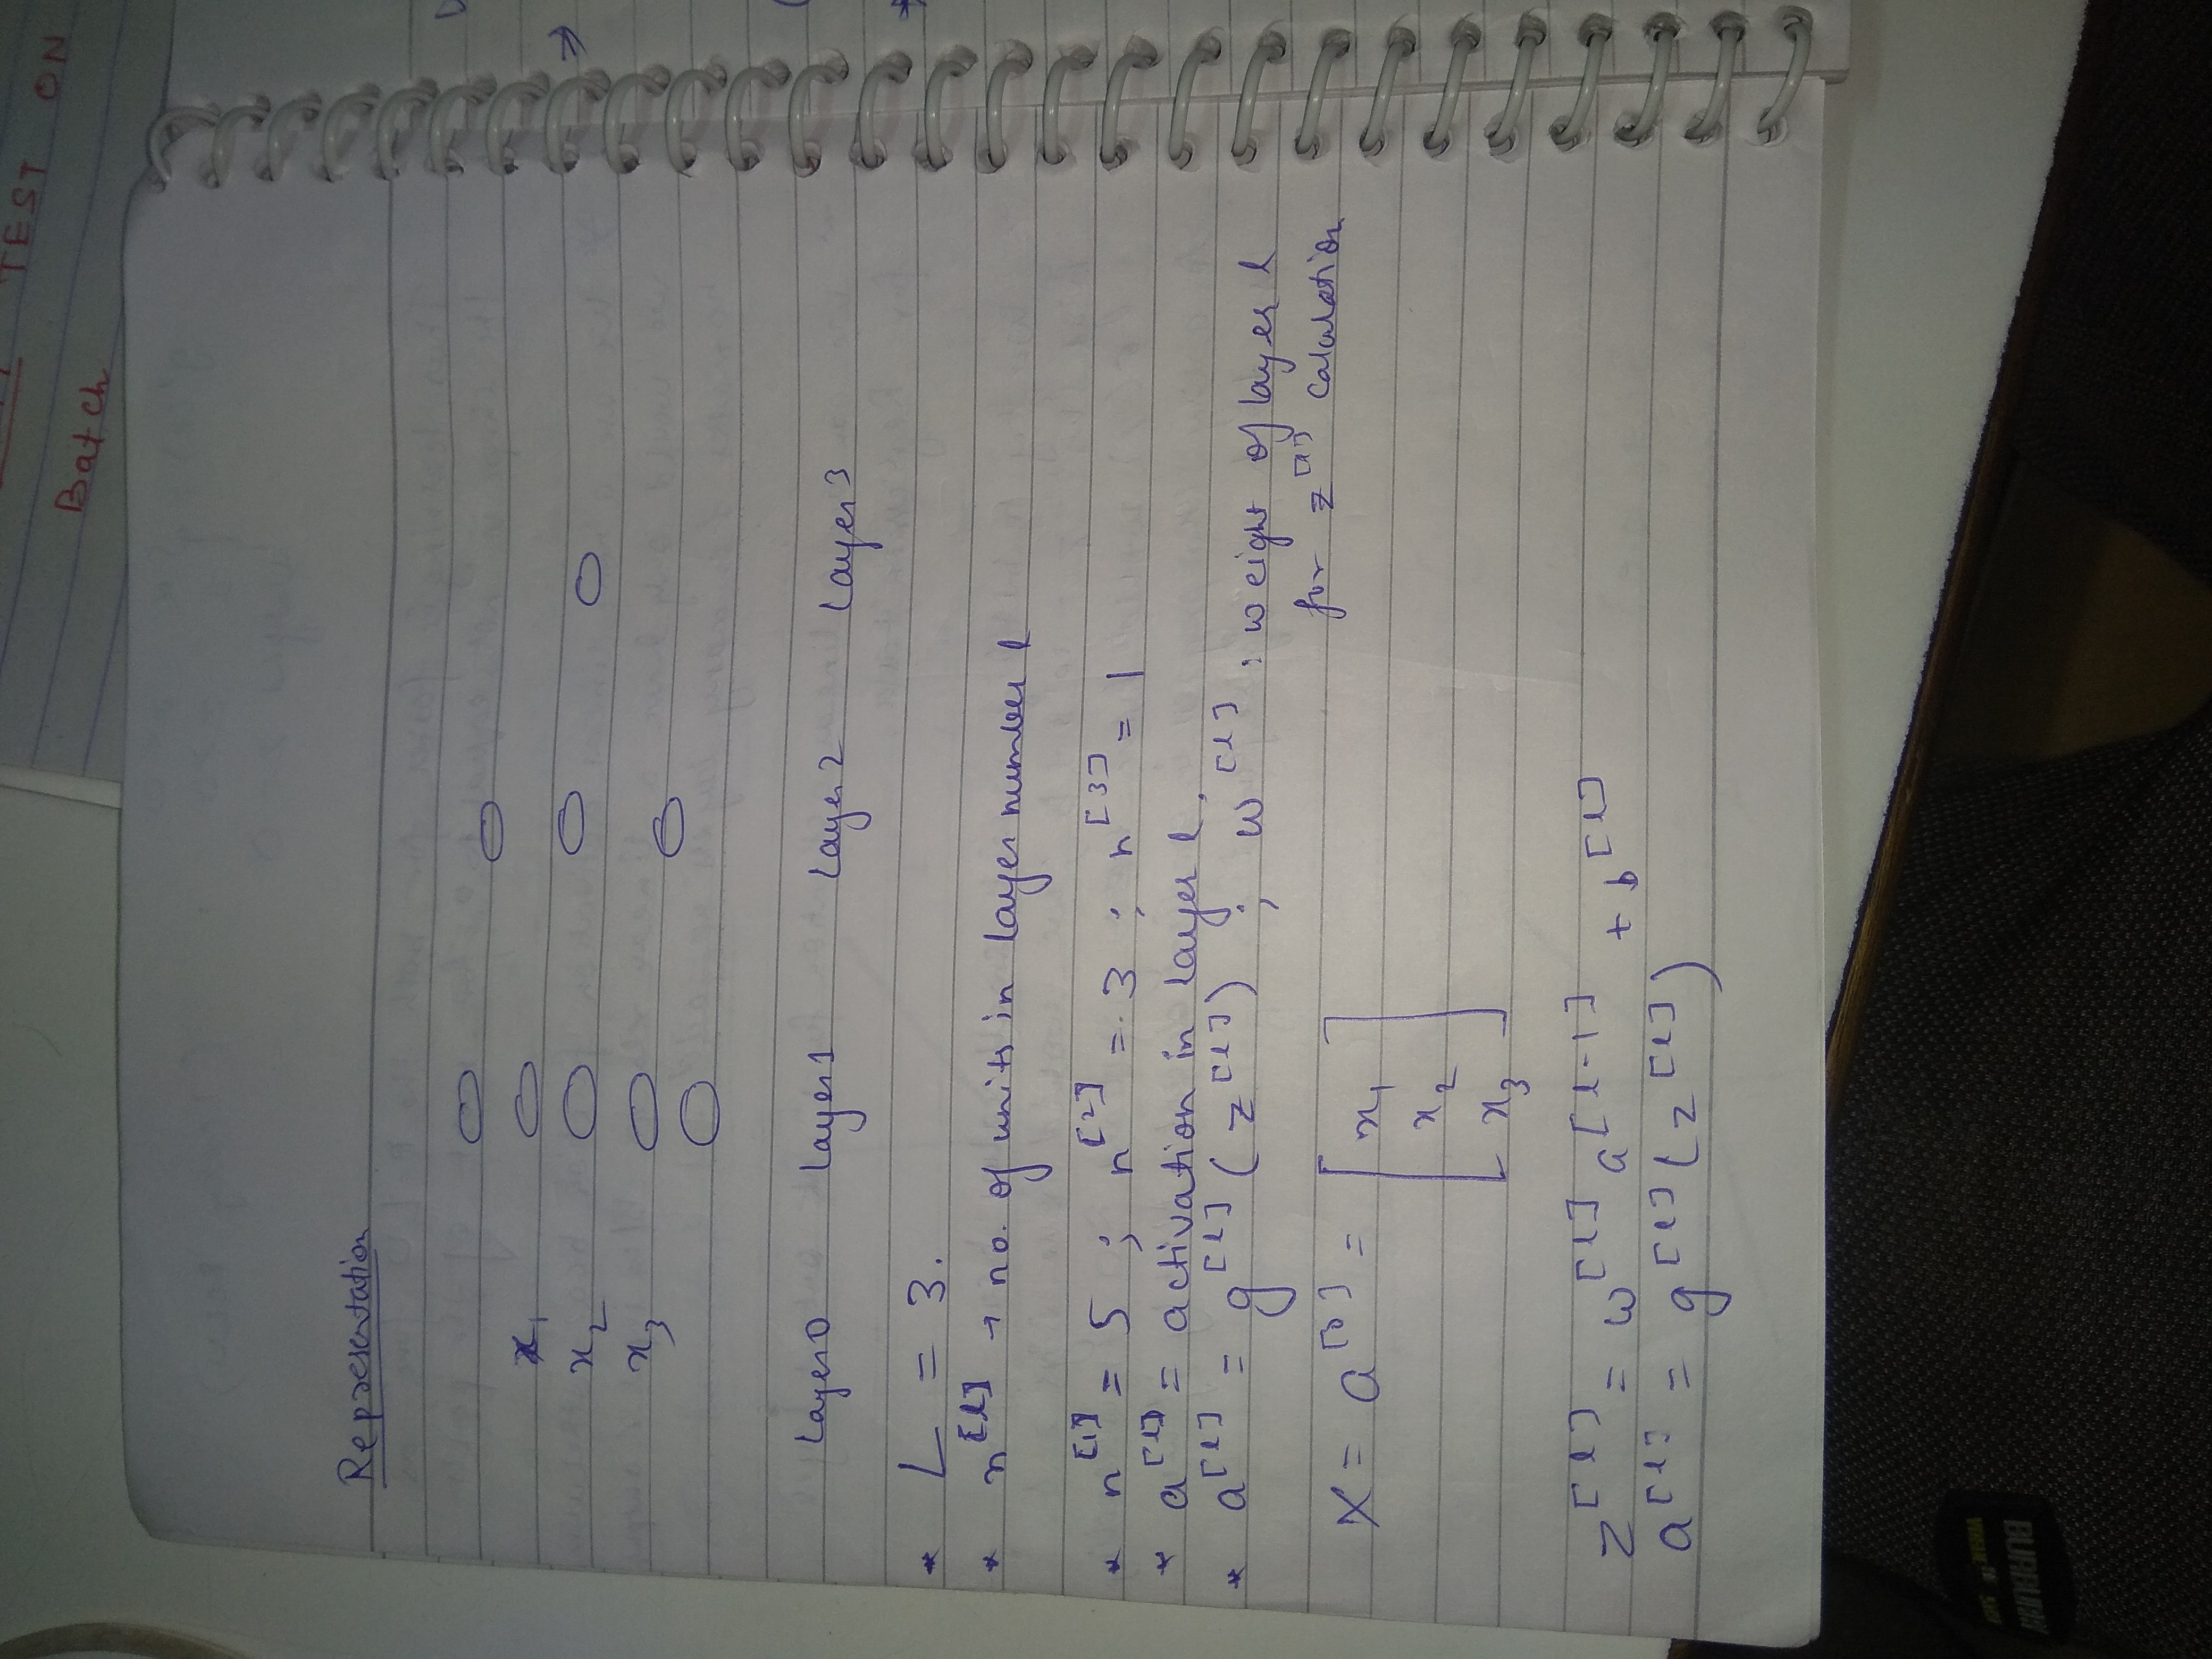 TEST ON
Batch
Representation
x₁
x₂
x₃
Layer0 Layer1 Layer2 Layer3
* L = 3.
* n^[l] → no. of units in layer number l
* n^[1] = 5 ; n^[2] = 3 ; n^[3] = 1
* a^[l] = activation in layer l,
* a^[l] = g^[l] (z^[l]) ; w^[l] : weight of layer l
for z^[l] calculation
X = a^[0] = [x₁
x₂
x₃]
z^[l] = w^[l] a^[l-1] + b^[l]
a^[l] = g^[l] (z^[l])